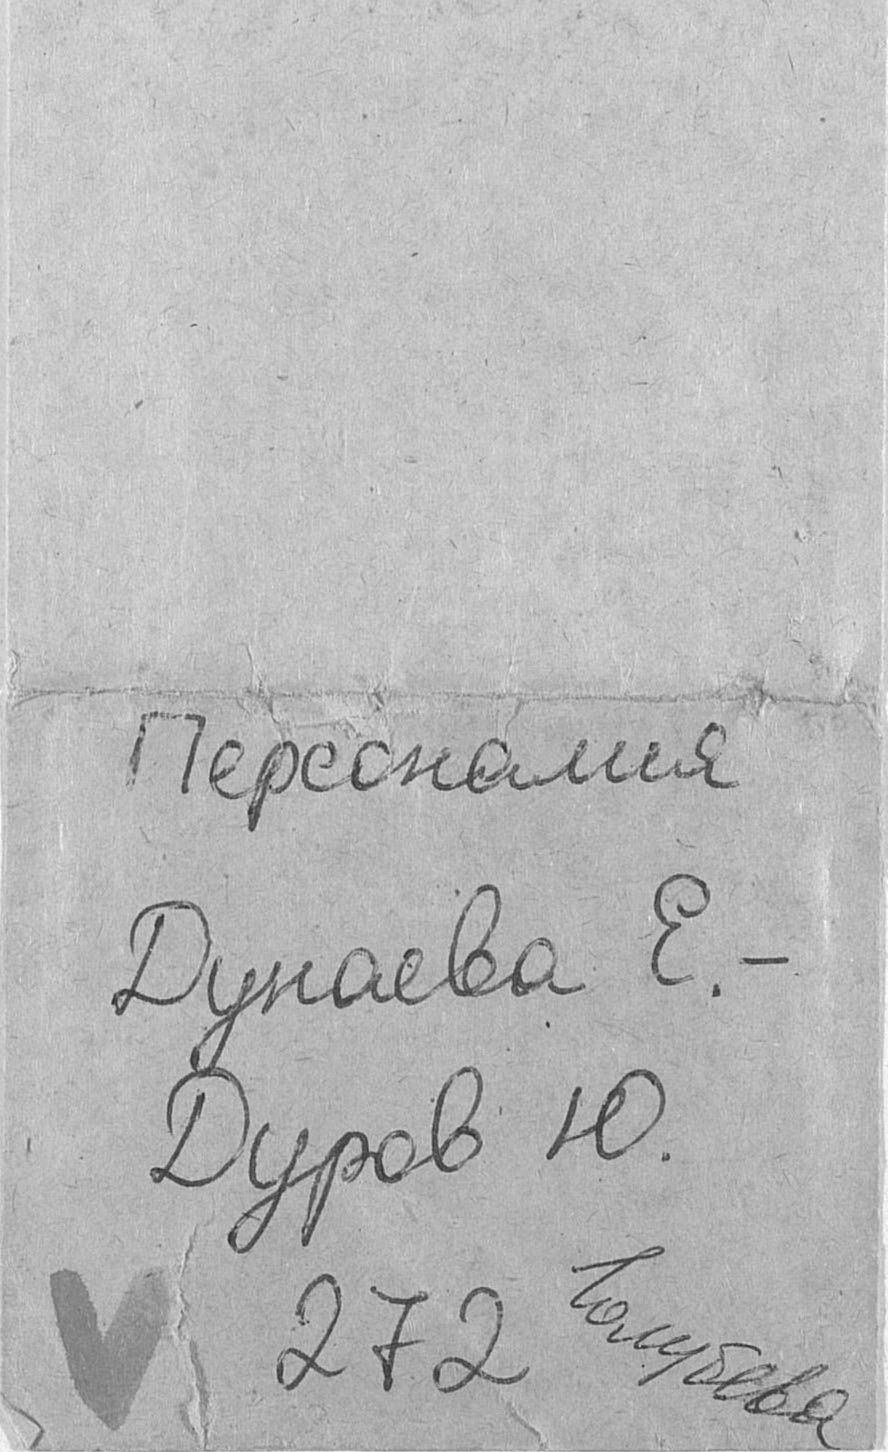 Персоналия
Дунаева Е.-
Дуров Ю.
272
Голубева